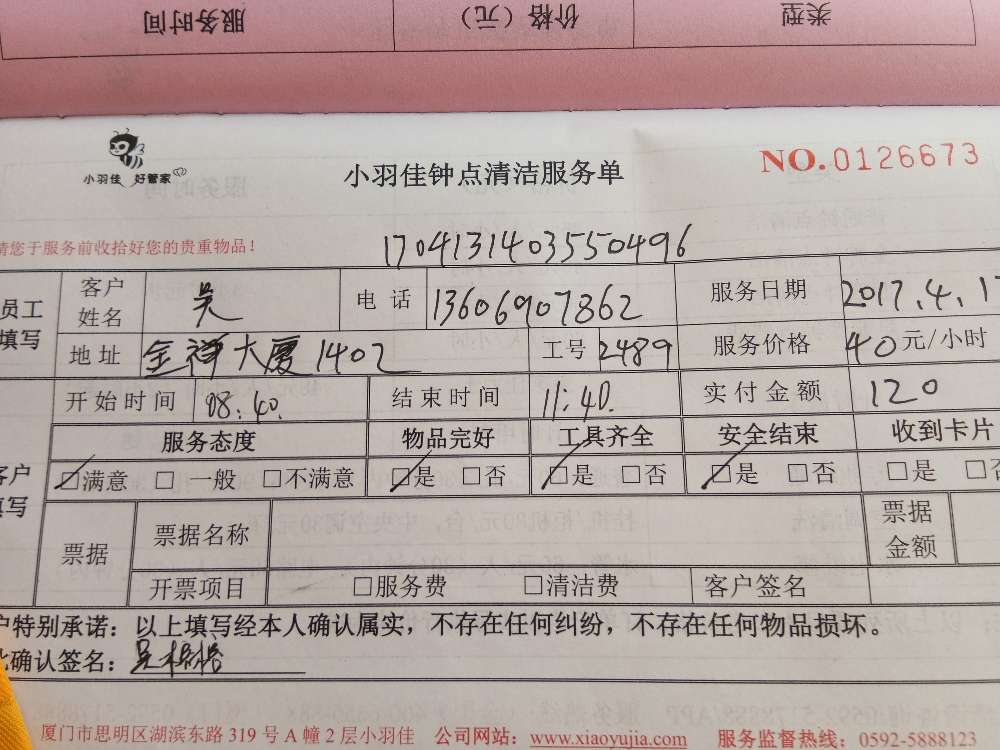 服务时间 价格（元） 类型
小羽佳 好管家
小羽佳钟点清洁服务单
NO.0126673
请您于服务前收拾好您的贵重物品！
1704131403550496
员工填写 客户姓名 吴 电话 13606907862 服务日期 2017.4.17
地址 金祥大厦1402 工号 2489 服务价格 40元/小时
开始时间 08:40. 结束时间 11:40. 实付金额 120
服务态度 物品完好 工具齐全 安全结束 收到卡片
客户填写 ☑满意 □一般 □不满意 ☑是 □否 ☑是 □否 ☑是 □否 □是 □否
票据 票据名称 票据金额
开票项目 □服务费 □清洁费 客户签名
户特别承诺：以上填写经本人确认属实，不存在任何纠纷，不存在任何物品损坏。
此确认签名：吴
厦门市思明区湖滨东路 319 号 A 幢 2 层小羽佳 公司网站：www.xiaoyujia.com 服务监督热线：0592-5888123